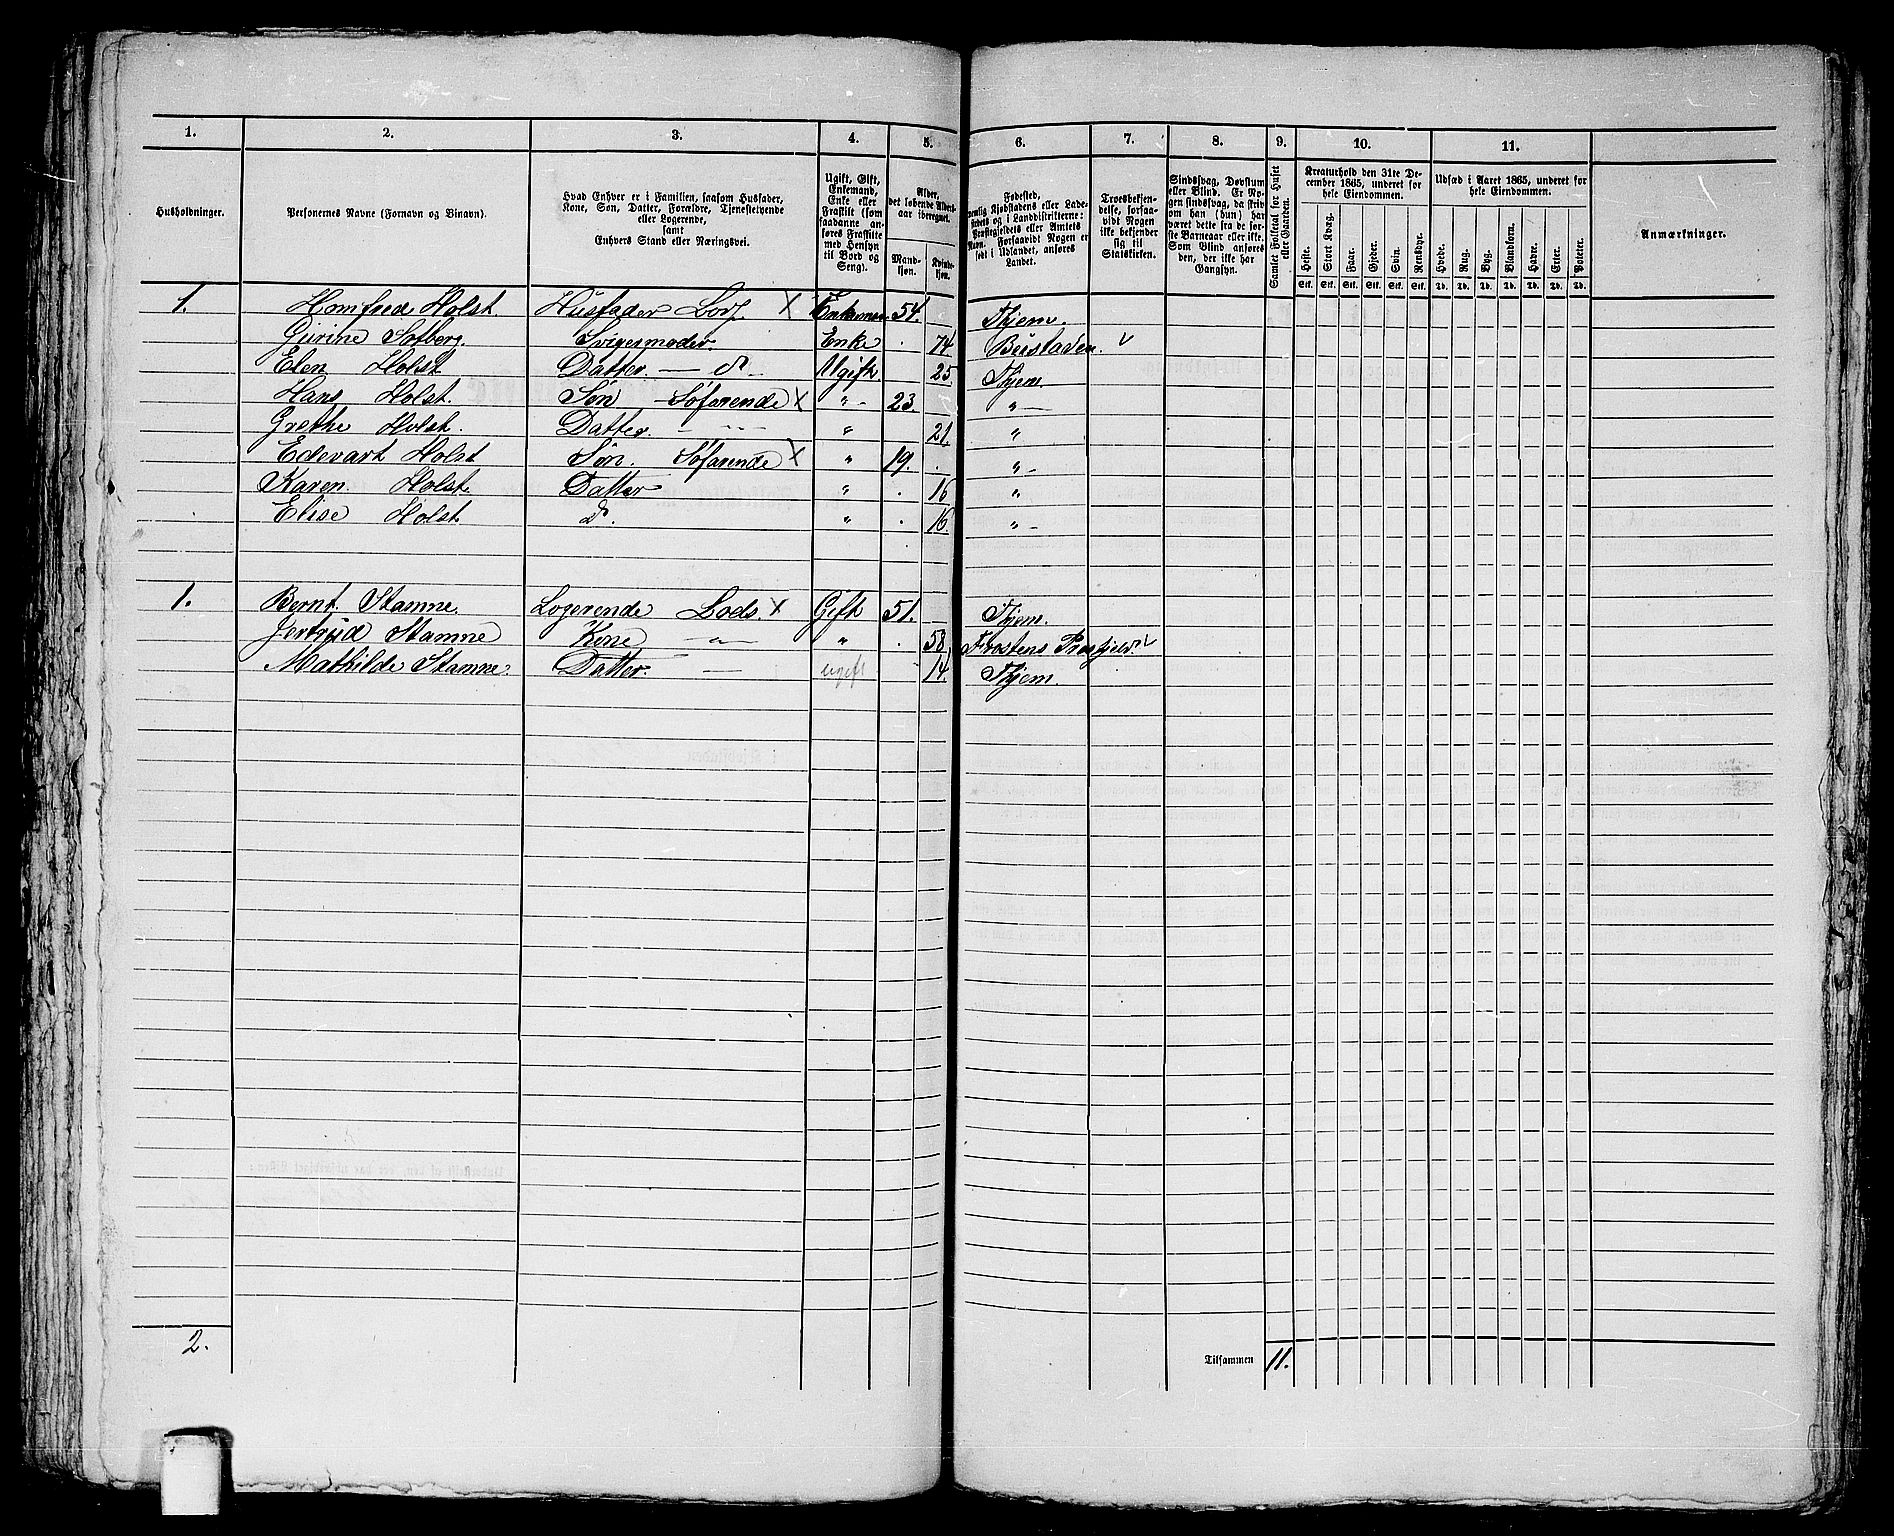 1. 2. 3. 4. 5. 6. 7. 8. 9. 10. 11.
Husholdninger.
Personernes Navne (Fornavn og Binavn).
Hvad Enhver er i Familien, saasom Husfader,
Kone, Søn, Datter, Forældre, Tjenestetyende
eller Logerende,
samt
Enhvers Stand eller Næringsvei.
Ugift, Gift,
Enkemand,
Enke eller
Fraskilt (som
saadanne an-
føres Fraskilte
med Hensyn
til Bord og
Seng).
Alder,
det løbende Alders-
aar iberegnet.
Mand-
kjøn.
Kvinde-
kjøn.
Fødested,
nemlig Kjøbstadens eller Lade-
stedets og i Landdistrikterne:
Præstegjeldets eller Amtets
Navn. Forsaavidt Nogen er
født i Udlandet, anføres
Landet.
Troesbekjen-
delse, forsaa-
vidt Nogen
ikke bekjender
sig til
Statskirken.
Sindssvag, Døvstum
eller Blind. Er No-
gen sindssvag, da skriv
om han (hun) har
været dette fra de før-
ste Barneaar eller ikke.
Som Blind anføres
den, der ikke har
Gangsyn.
Samlet Folketal for Huset
eller Gaarden.
Kreaturhold den 31te De-
cember 1865, underet for
hele Eiendommen.
Heste. Stort Kvæg. Faar. Gjeder. Svin. Rensdyr.
Stk. Stk. Stk. Stk. Stk. Stk.
Udsæd i Aaret 1865, underet for
hele Eiendommen.
Hvede. Rug. Byg. Blandkorn. Havre. Erter. Poteter.
Td. Td. Td. Td. Td. Td. Td.
Anmærkninger.
1. Homfred Holst Husfader X Enkeman 54. Thjem.
Gurine Solberg. Svigermoder. Enke . 74. Beistaden. v
Elen Holst Datter — do — Ugift. 25 Thjem
Hans Holst. Søn — Søfarende X " - 23. " —
Grethe Holst. Datter. — " — " 21. "
Edevart Holst Søn. Søfarende X " 19. . " -
Karen Holst. Datter " . 16 "
Elise Holst d. " . 16. " -
1. Bernt Stamne. Logerende Lods. X Gift 51. Thjem.
Jertrud Stamne Kone " " . 58 Frostens v
Mathilde Stamne. Datter. — ugift 14. Thjem.
2. Tilsammen 11.